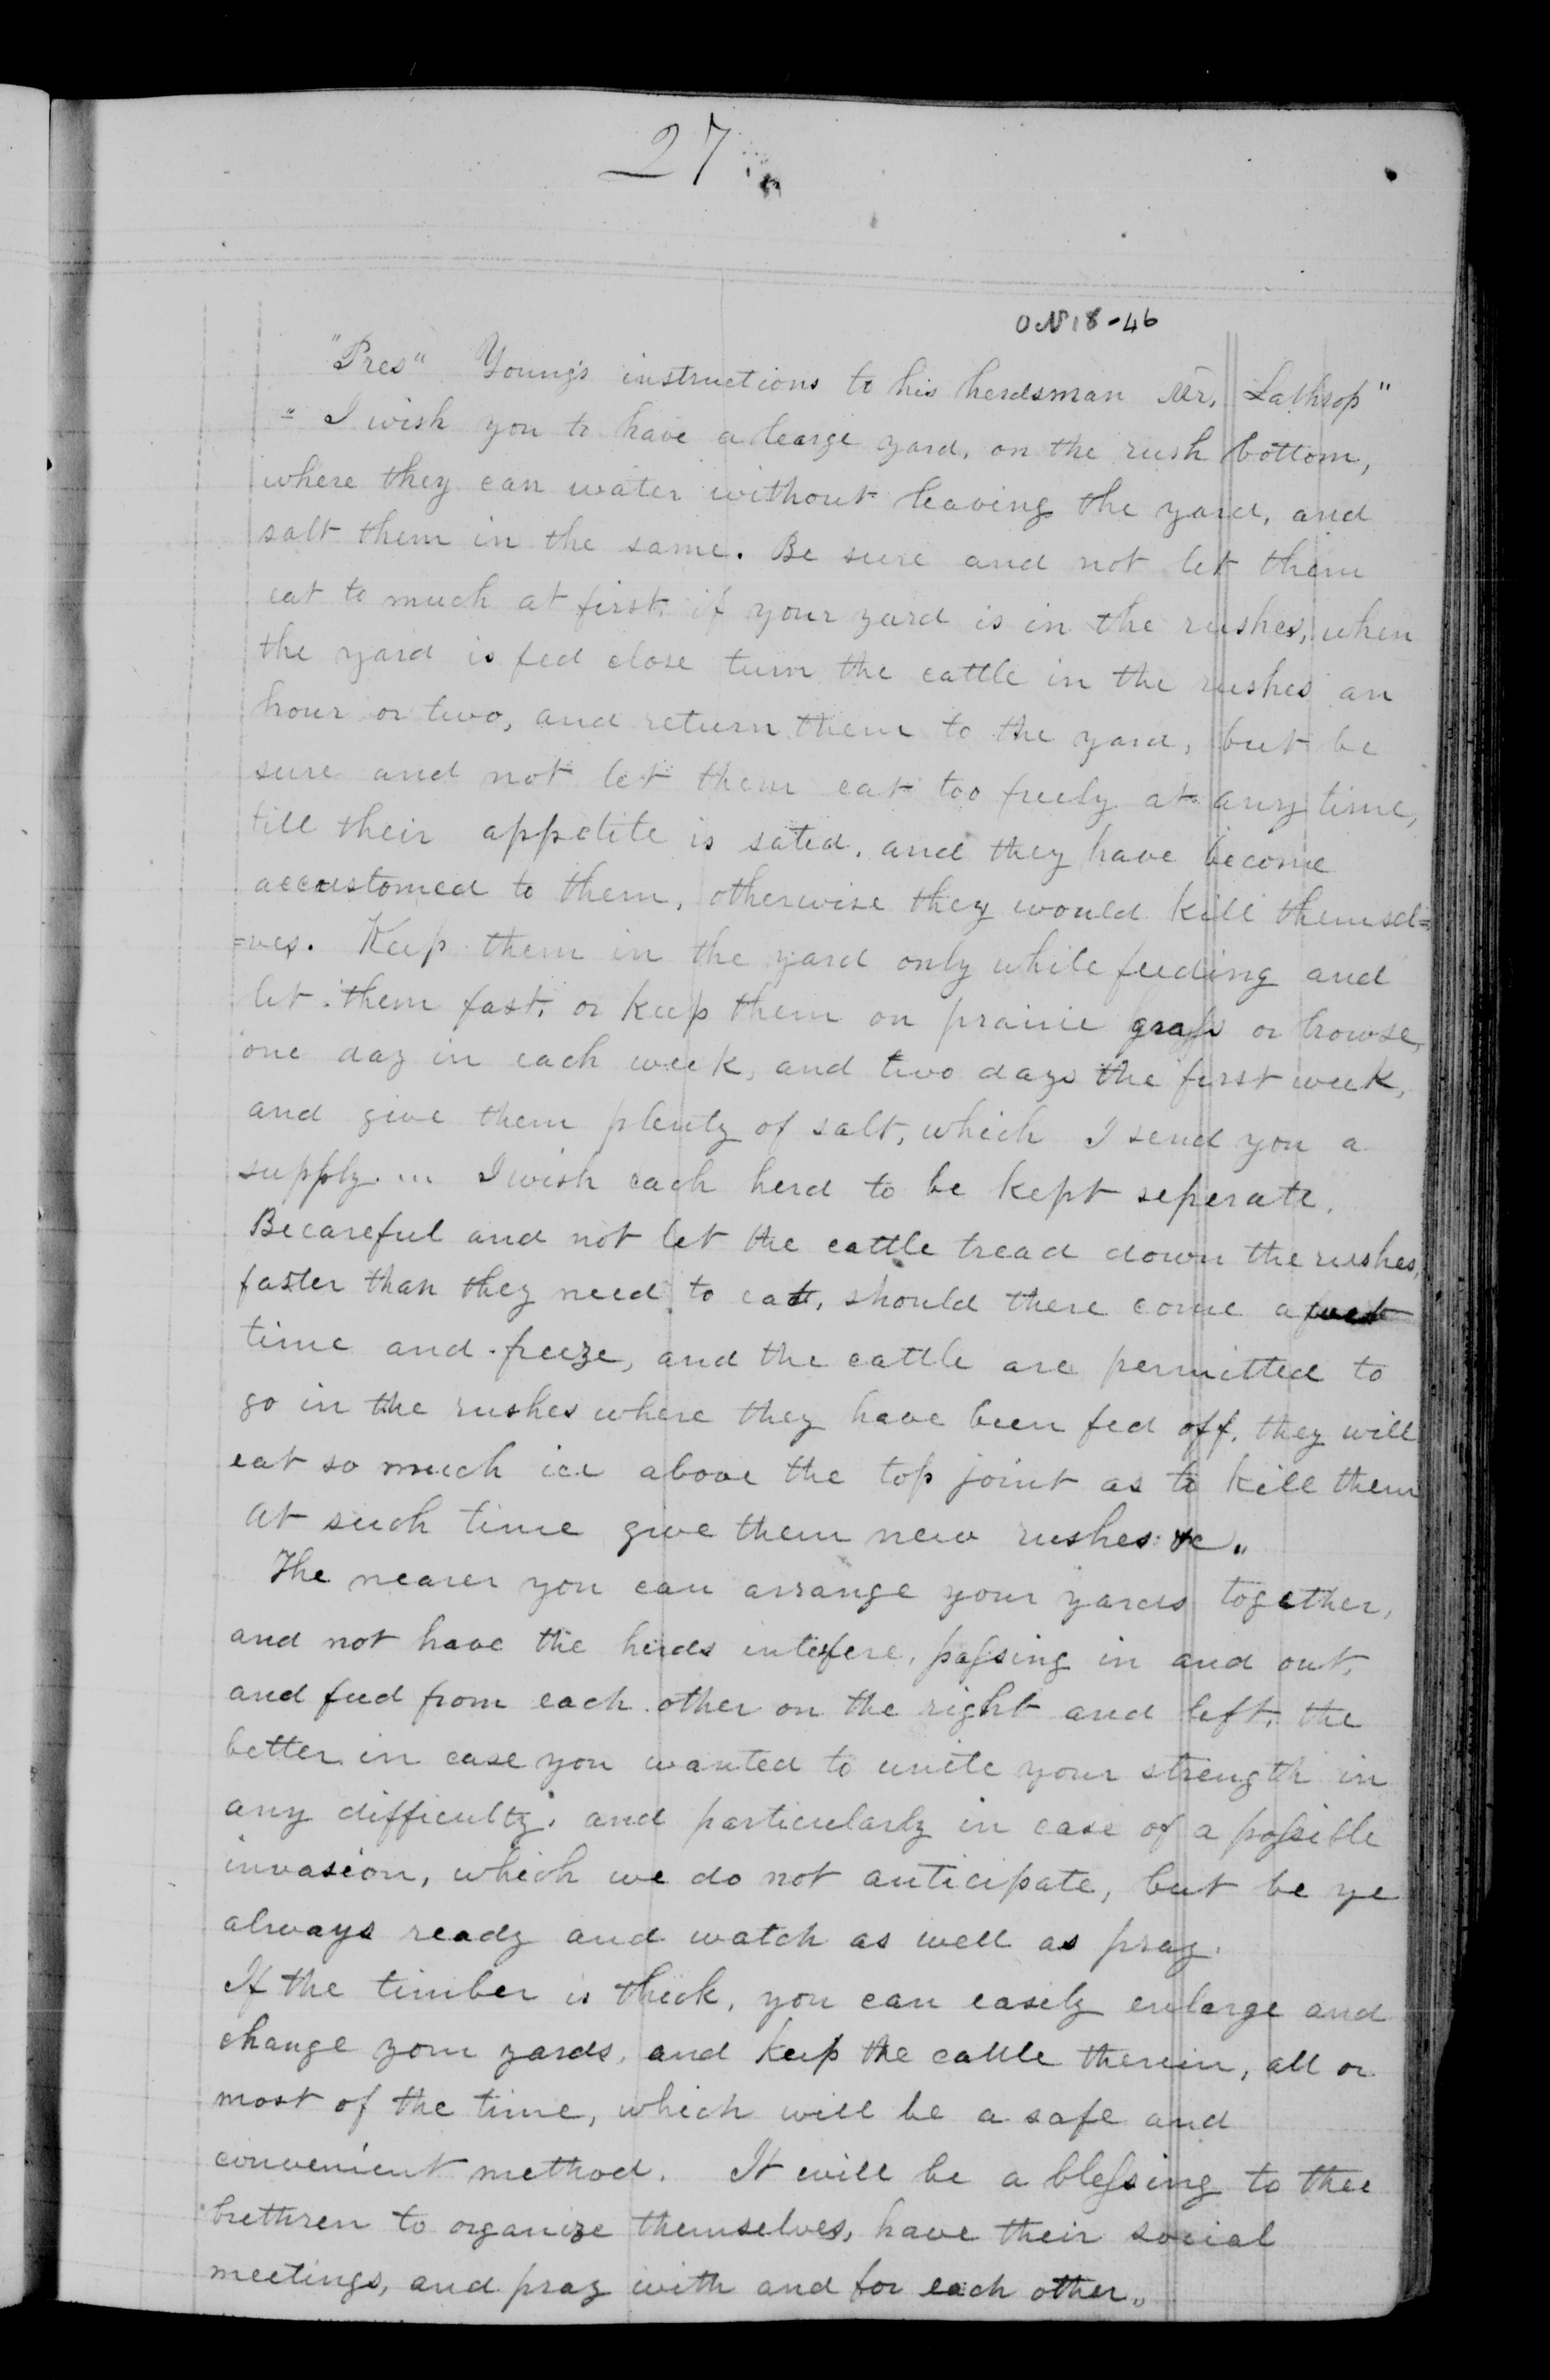 27
ON 18-46
"Pres" Young's instructions to his herdsman Mr. Lathrop"
" I wish you to have a learge yard, on the rush bottom,
where they can water without leaving the yard, and
salt them in the same. Be sure and not let them
eat to much at first, if your yard is in the rushes, when
the yard is fed close turn the cattle in the rushes an
hour or two, and return them to the yard, but be
sure and not let them eat too freely at any time,
till their appetite is sated, and they have become
accustomed to them, otherwise they would kill themsel=
=ves. Keep them in the yard only while feeding and
let them fast, or keep them on prairie grass or browse,
one day in each week, and two days the first week,
and give them plenty of salt, which I send you a
supply... I wish each herd to be kept seperate.
Be careful and not let the cattle tread down the rushes,
faster than they need to eat, should there come a wet
time and freeze, and the cattle are permitted to
go in the rushes where they have been fed off, they will
eat so much ice above the top joint as to kill them
at such time give them new rushes &c.,
The nearer you can arrange your yards together,
and not have the herds intefere, passing in and out,
and feed from each other on the right and left, the
better in case you wanted to unite your strength in
any difficulty, and particularly in case of a possible
invasion, which we do not anticipate, but be ye
always ready and watch as well as pray.
If the timber is thick, you can easily enlarge and
change your yards, and keep the cattle therein, all or
most of the time, which will be a safe and
convenient method. It will be a blessing to thee
brethren to organize themselves, have their social
meetings, and pray with and for each other.,